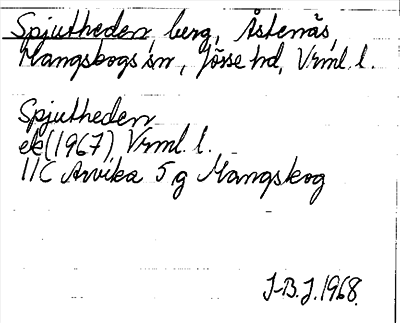 Spjutheden, berg, Åstenäs,
Mangskogs sn, Jösse hd, Vrml. l.
Spjutheden
ek (1967), Vrml. l.
11C Arvika 5 g Mangskog
J-B.J. 1968.